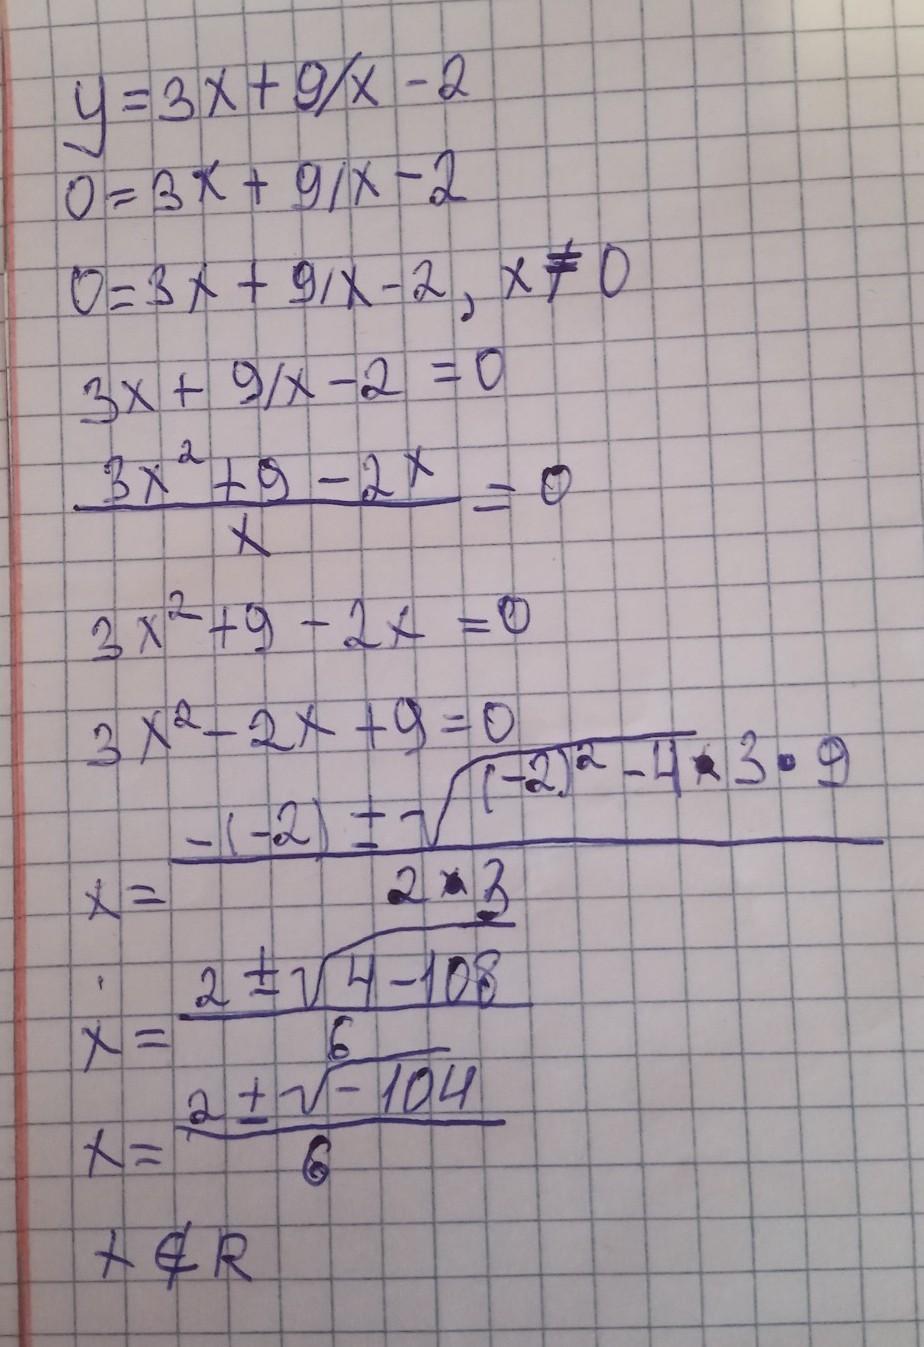 y = 3x + 9/x - 2
0 = 3x + 9/x - 2
0 = 3x + 9/x - 2, x ≠ 0
3x + 9/x - 2 = 0
(3x² + 9 - 2x)/x = 0
3x² + 9 - 2x = 0
3x² - 2x + 9 = 0
x = (-(-2) ± √((-2)² - 4 · 3 · 9))/(2 · 3)
x = (2 ± √(4 - 108))/6
x = (2 ± √(-104))/6
x ∉ R